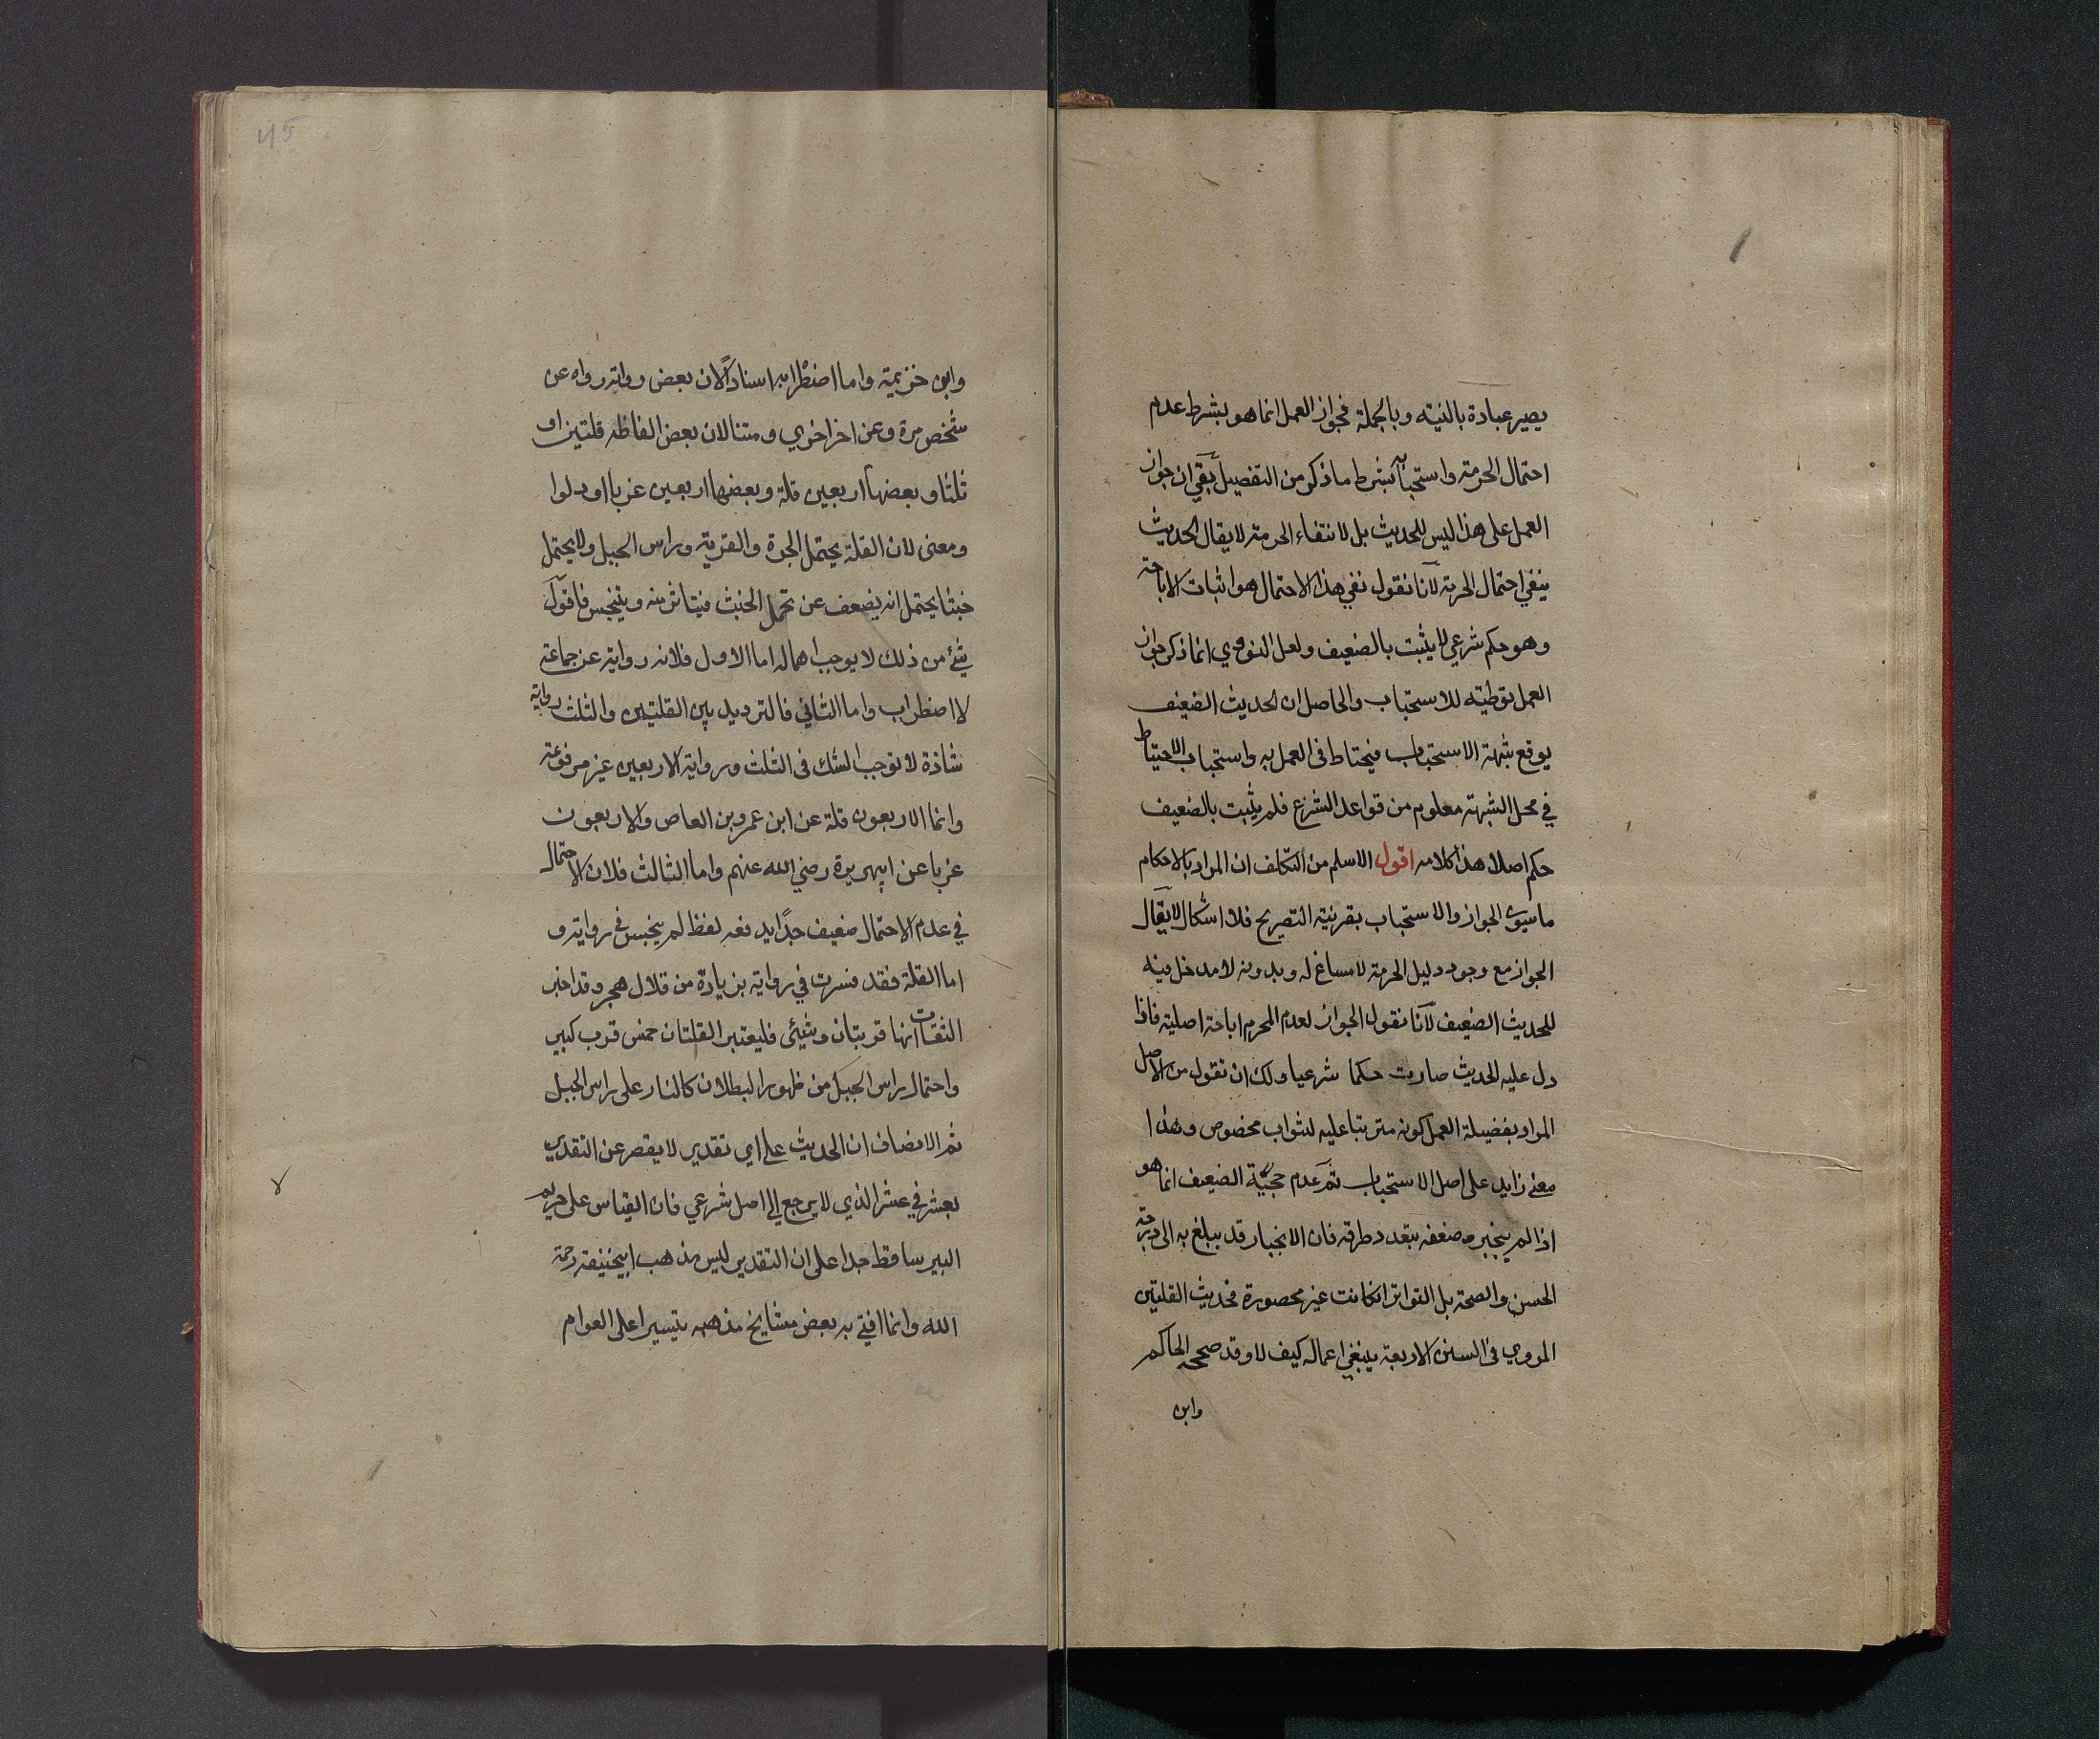 يصير عبادة بالنية وبالجملة فجواز العمل انما هو بشرط عدم
احتمال الحرمة واستحبابه بشرط ما ذكر من التفصيل بقي ان جواز
العمل على هذا ليس للحديث بل لانتفاء الحرمة لا يقال الحديث
ينفي احتمال الحرمة لانا نقول نفي هذا الاحتمال هو اثبات الاباحة
وهو حكم شرعي لا يثبت بالضعيف ولعل النووي انما ذكر جواز
العمل توطية للاستحباب والحاصل ان الحديث الضعيف
يوقع شبهة الاستحباب فيحتاط فى العمل به واستحباب الاحتياط
في محل الشبهة معلوم من قواعد الشرع فلم يثبت بالضعيف
حكم اصلا هذا كلامه اقول الاسلم من التكلف ان المراد بالاحكام
ما سوى الجواز والاستحباب بقرينة التصريح فلا اشكال لا يقال
الجواز مع وجود دليل الحرمة لا مساغ له وبدونه لا مدخل فيه
للحديث الضعيف لانا نقول الجواز لعدم المحرم اباحة اصلية فاذا
دل عليه الحديث صارت حكما شرعيا ولك ان تقول من الاصل
المراد بفضيلة العمل كونه مترتبا عليه لثواب مخصوص وهذا
معنى زايد على اصل الاستحباب ثم عدم حجية الضعيف انما هو
اذا لم ينجبر ضعفه بتعدد طرقه فان الانجبار قد يبلغ به الى درجة
الحسن والصحة بل التواتر انكانت غير محصورة فحديث القلتين
المروي فى السنن الاربعة ينبغي اعماله كيف لا وقد صححه الحاكم
وابن
45
وابن خزيمة واما اضطرابه اسنادا لان بعض رواته رواه عن
شخص مرة وعن اخر اخرى ومتنا لان بعض الفاظه قلتين او
ثلثا وبعضها اربعين قلة وبعضها اربعين غربا او دلوا
ومعنى لان القلة يحتمل الجرة والقربة وراس الجبل ولا يحتمل
خبثا يحتمل انه يضعف عن تحمل الخبث فيتاثر منه ويتنجس فاقول
شئ من ذلك لا يوجب اهماله اما الاول فلانه رواية عن جماعة
لا اضطراب واما الثاني فالترديد بين القلتين والثلث رواية
شاذة لا توجب الشك فى الثلث ورواية الاربعين غير مرفوعة
وانما الاربعون قلة عن ابن عمرو بن العاص والاربعون
غربا عن ابيهريرة رضي الله عنهم واما الثالث فلان الاحتمال
في عدم الاحتمال ضعيف جدا يدفعه لفظ لم ينجس في رواية و
اما القلة فقد فسرت في رواية بزيادة من قلال هجر وقد اخبر
الثقات انها قربتان وشيئى فليعتبر القلتان خمس قرب كبير
واحتمال راس الجبل من ظهور البطلان كالنار على راس الجبل
ثم الانصاف ان الحديث على اي تقدير لا يقصر عن التقدير
بعشر في عشر الذي لا يرجع الى اصل شرعي فان القياس على حريم
البير ساقط جدا على ان التقدير ليس مذهب ابيحنيفة رحمة
الله وانما افتى به بعض مشايخ مذهبه تيسيرا على العوام